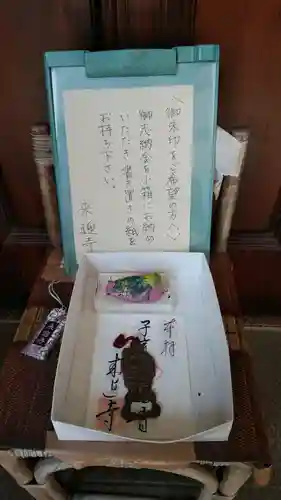 〈御朱印をご希望の方〉
御志納金を小箱にお納め
いただき書き置きの紙を
お持ち下さい。
来迎寺
奉拝
来迎寺